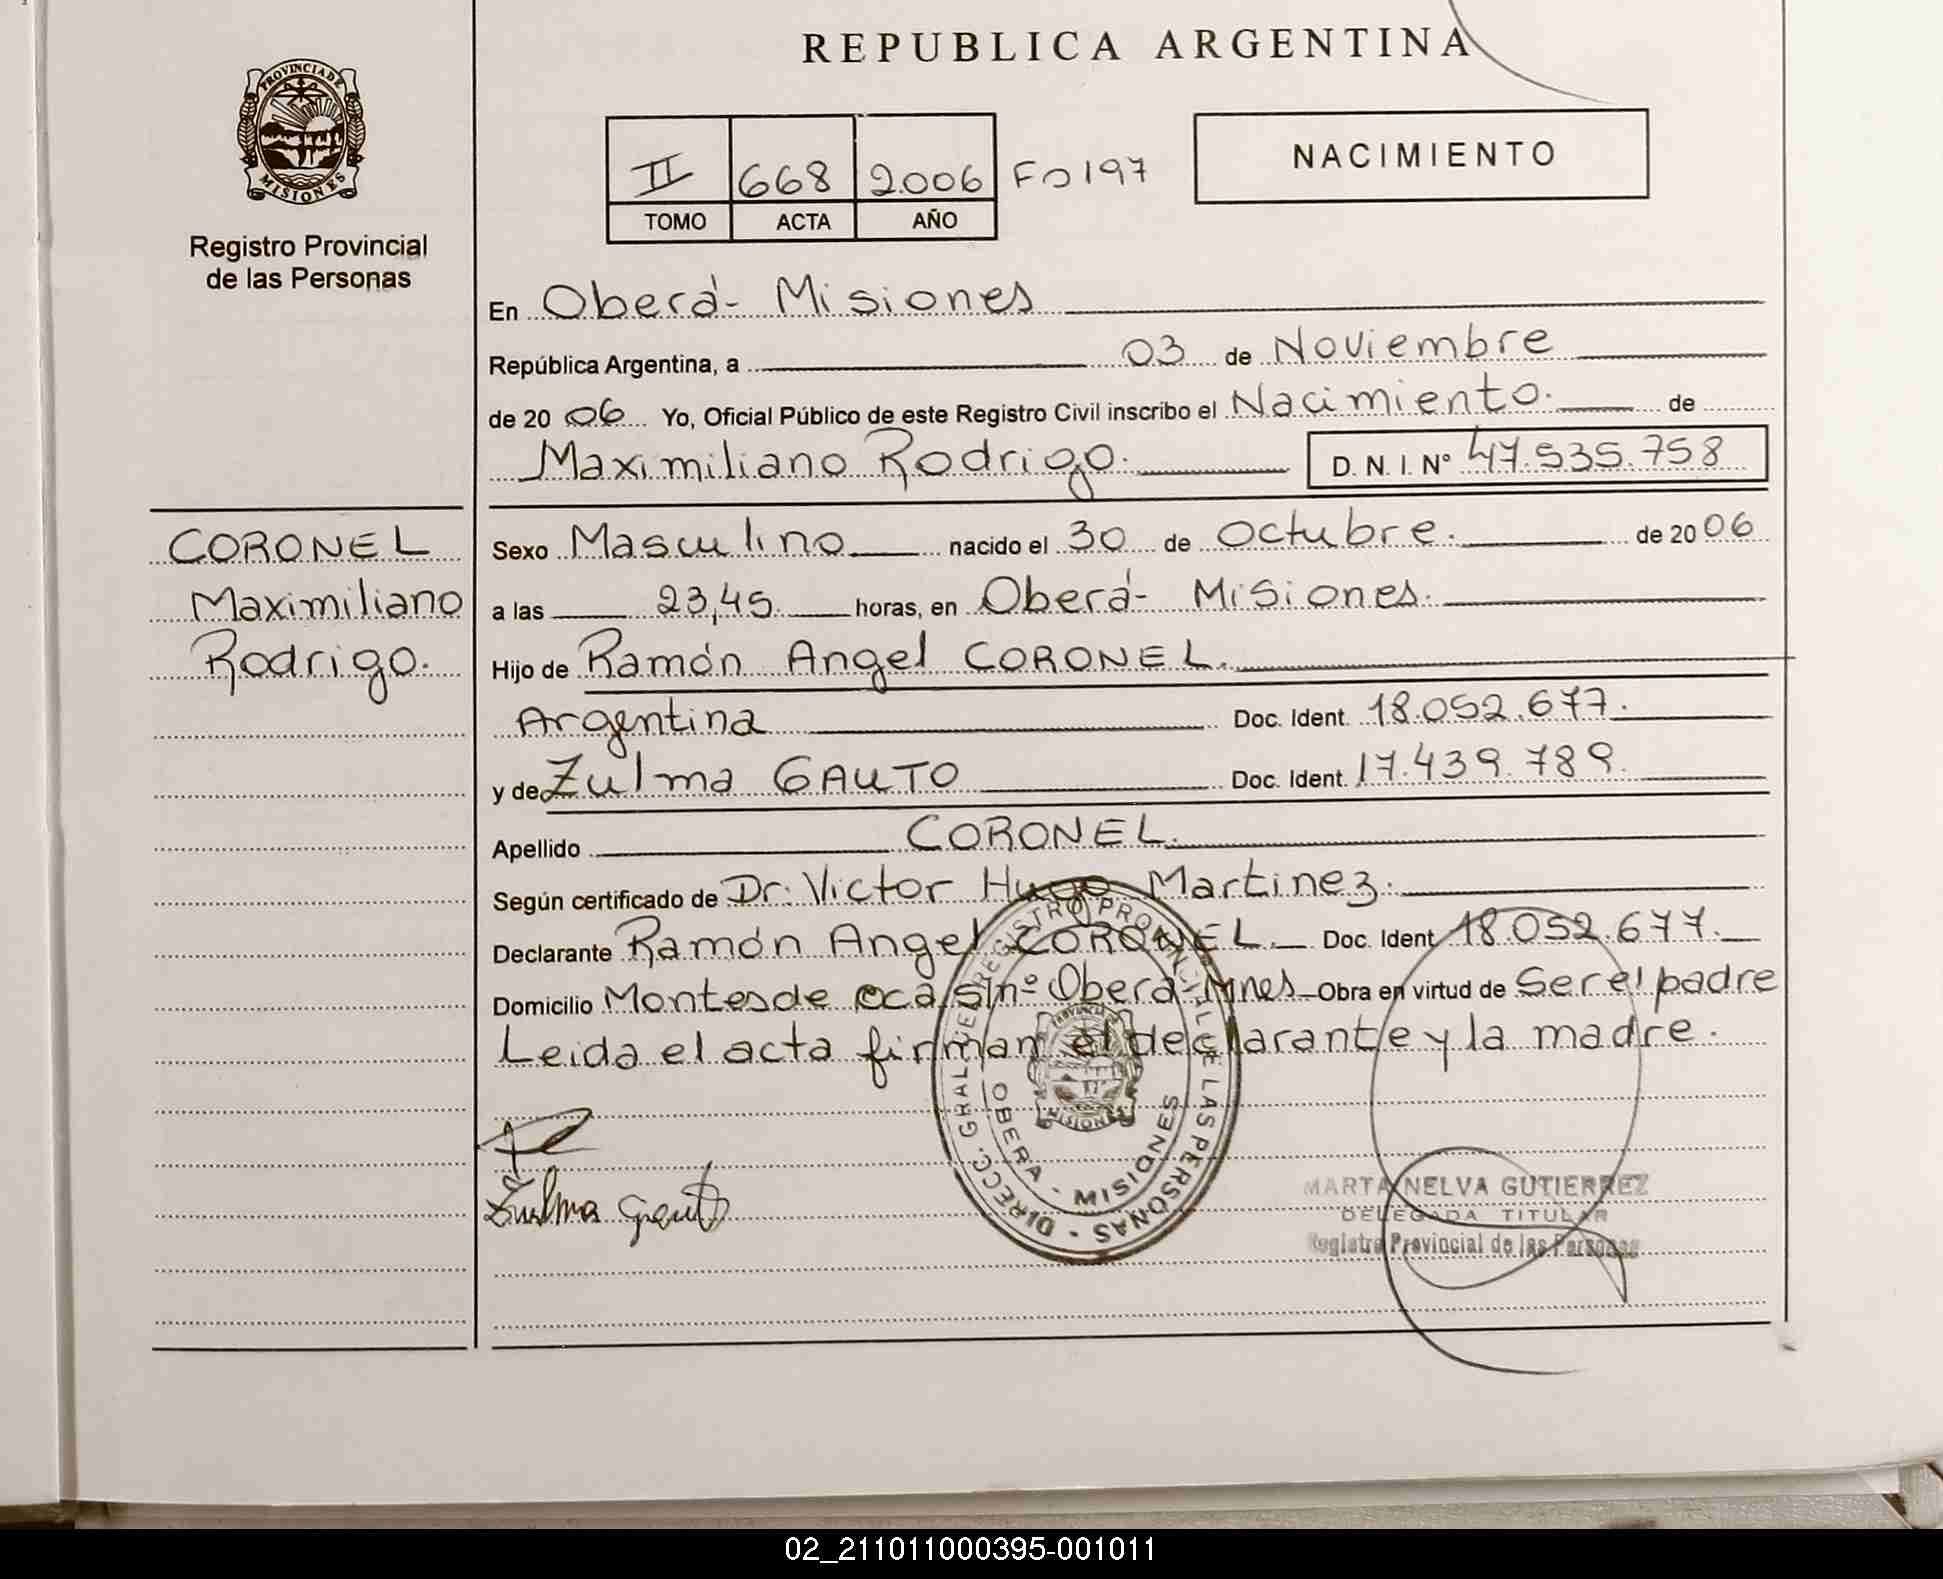 REPUBLICA ARGENTINA
PROVINCIA DE MISIONES
Registro Provincial
de las Personas
II 668 2006 Fo 197
TOMO ACTA AÑO
NACIMIENTO
En Oberá - Misiones
República Argentina, a 03 de Noviembre
de 2006 Yo, Oficial Público de este Registro Civil inscribo el Nacimiento. de
Maximiliano Rodrigo. D. N. I. Nº 47.535.758
CORONEL
Maximiliano
Rodrigo.
Sexo Masculino nacido el 30 de Octubre. de 2006
a las 23,45 horas, en Oberá - Misiones.
Hijo de Ramón Angel CORONEL.
Argentina Doc. Ident. 18.052.677.
y de Zulma GAUTO Doc. Ident. 17.439.789.
Apellido CORONEL.
Según certificado de Dr. Victor Hugo Martinez.
Declarante Ramón Angel CORONEL. Doc. Ident. 18.052.677.
Domicilio Montes de oca s/nº Oberá - Mnes - Obra en virtud de Ser el padre
Leida el acta firman el declarante y la madre.
DIRECC. GRAL. DEL REGISTRO PROVINCIAL DE LAS PERSONAS -
OBERA - MISIONES
PROVINCIA DE MISIONES
Zulma Gauto
MARTA NELVA GUTIERREZ
DELEGADA TITULAR
Registro Provincial de las Personas
02_211011000395-001011